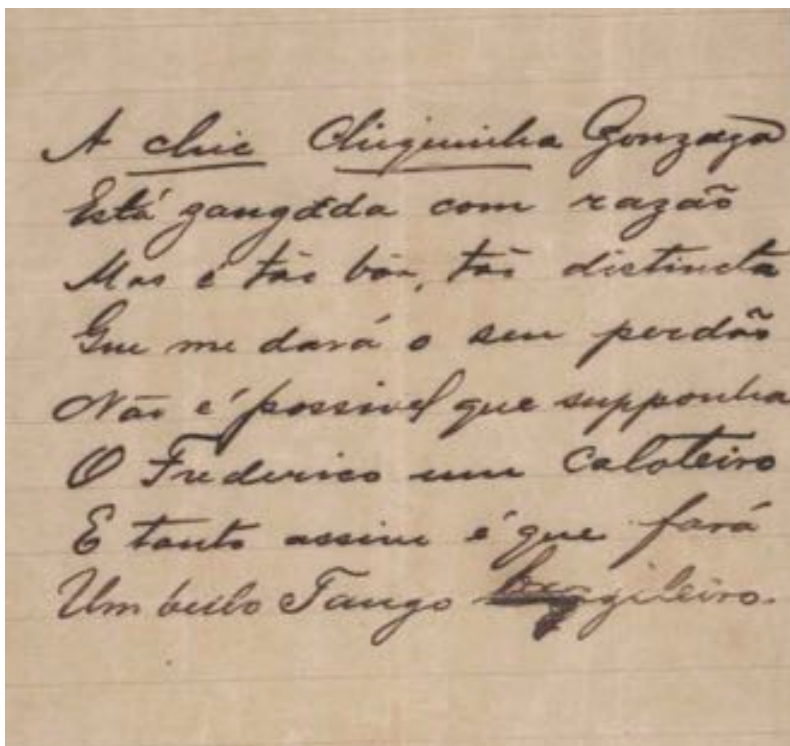 A chic Chiquinha Gonzaga
Está zangada com razão
Mas é tão bôa, tão distincta
Que me dará o seu perdão
Não é possivel que supponha
O Frederico um caloteiro
E tanto assim é que fará
Um bello Tango brazileiro.